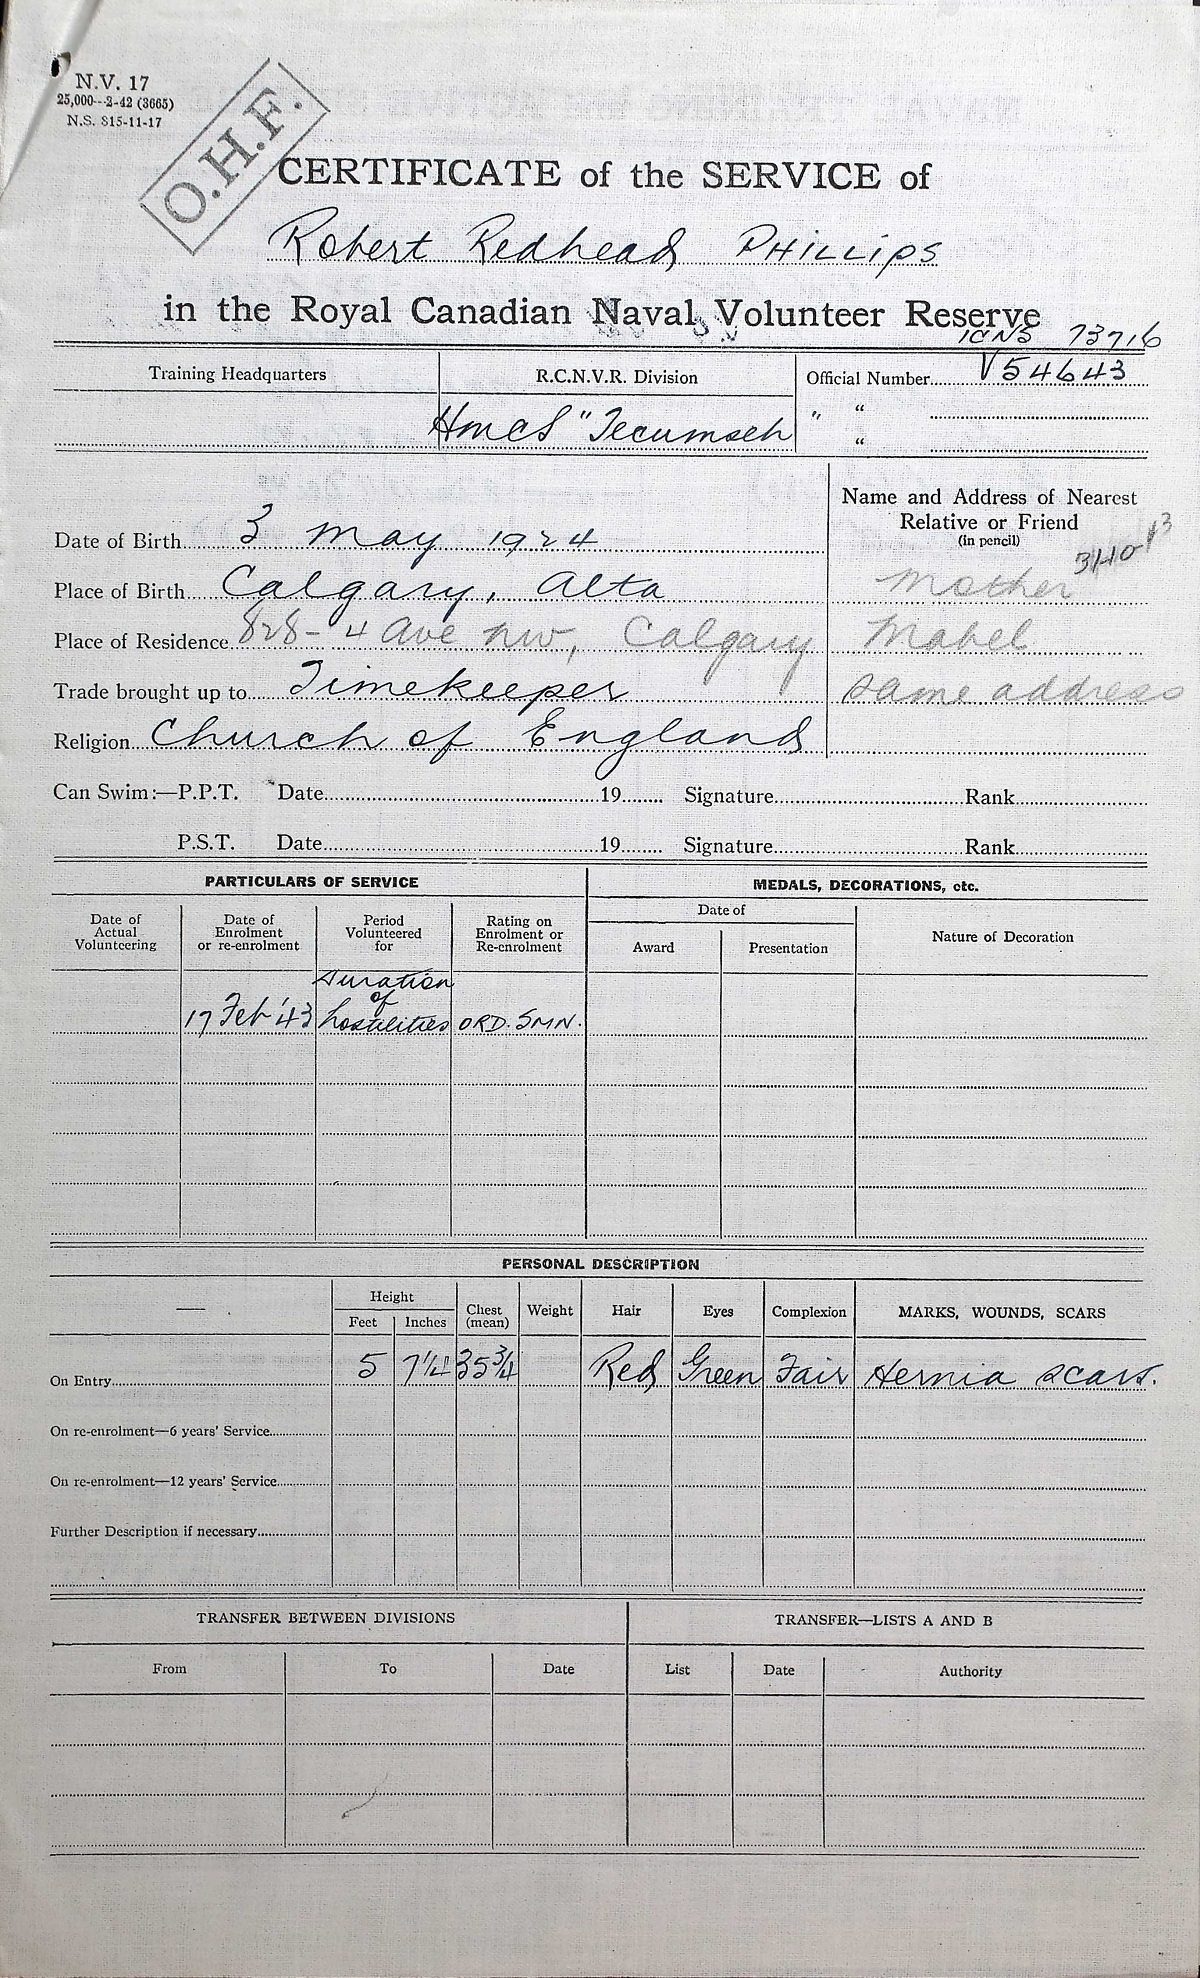 N.V. 17
25,000---2-42 (3665)
N.S. 815-11-17
O.H.F.
CERTIFICATE of the SERVICE of
Robert Redhead PHILLIPS
in the Royal Canadian Naval Volunteer Reserve
73716
Training Headquarters R.C.N.V.R. Division Official Number V54643
HMCS "Tecumseh " "
"
Name and Address of Nearest
Relative or Friend
(in pencil)
Date of Birth 3 May 1924
Place of Birth Calgary, Alta Mother
Place of Residence 828- 4 Ave NW, Calgary Mabel
Trade brought up to Timekeeper same address
Religion Church of England
Can Swim:—P.P.T. Date 19 Signature Rank
P.S.T. Date 19 Signature Rank
PARTICULARS OF SERVICE MEDALS, DECORATIONS, etc.
Date of Actual Volunteering Date of Enrolment or re-enrolment Period Volunteered for Rating on Enrolment or Re-enrolment Date of Award Presentation Nature of Decoration
Duration
of
17 Feb '43 hostilities ORD. SMN.
PERSONAL DESCRIPTION
— Height Feet Inches Chest (mean) Weight Hair Eyes Complexion MARKS, WOUNDS, SCARS
On Entry 5 7 1/4" 35 3/4 Red Green Fair Hernia scars.
On re-enrolment—6 years' Service
On re-enrolment—12 years' Service
Further Description if necessary
TRANSFER BETWEEN DIVISIONS TRANSFER—LISTS A AND B
From To Date List Date Authority